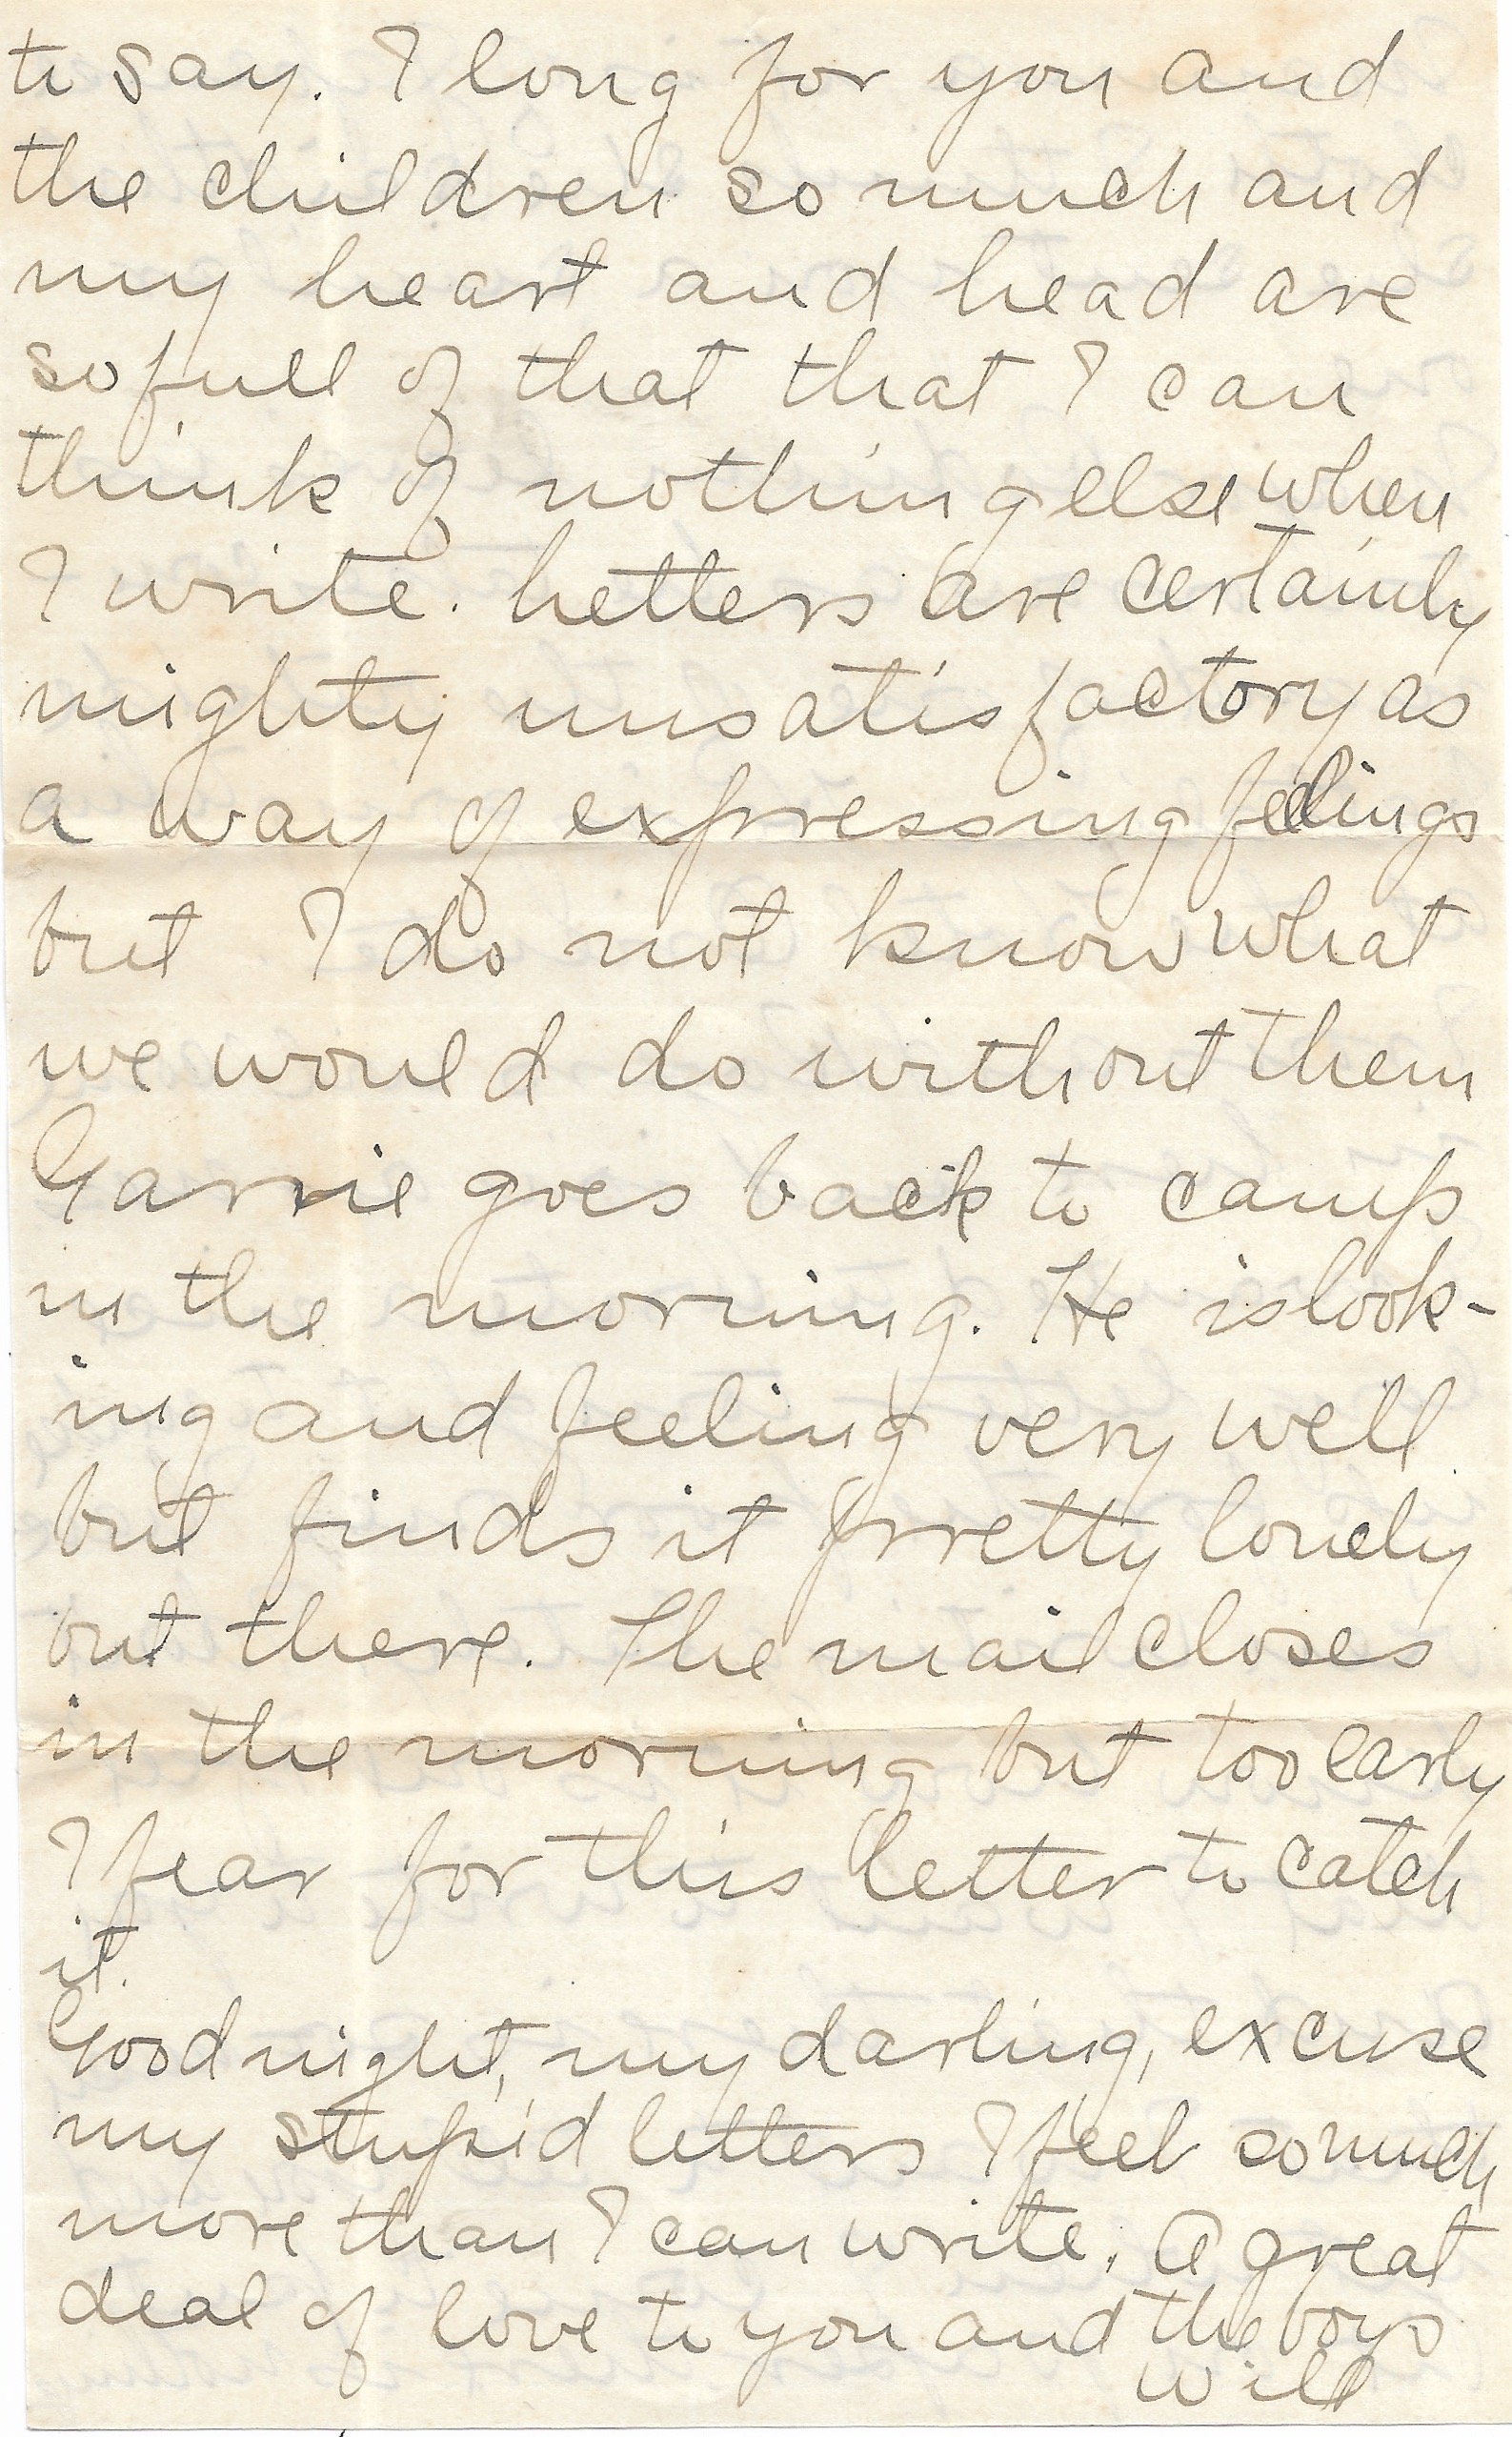 to say. I long for you and
the children so much and
my heart and head are
so full of that that I can
think of nothing else when
I write. Letters are certainly
mighty unsatisfactory as
a way of expressing feelings
but I do not know what
we would do without them
Garrie goes back to camp
in the morning. He is look-
ing and feeling very well
but finds it pretty lonely
out there. The mail closes
in the morning but too early
I fear for this letter to catch
it.
Good night, my darling, excuse
my stupid letters I feel so much
more than I can write. A great
deal of love to you and the boys
Will